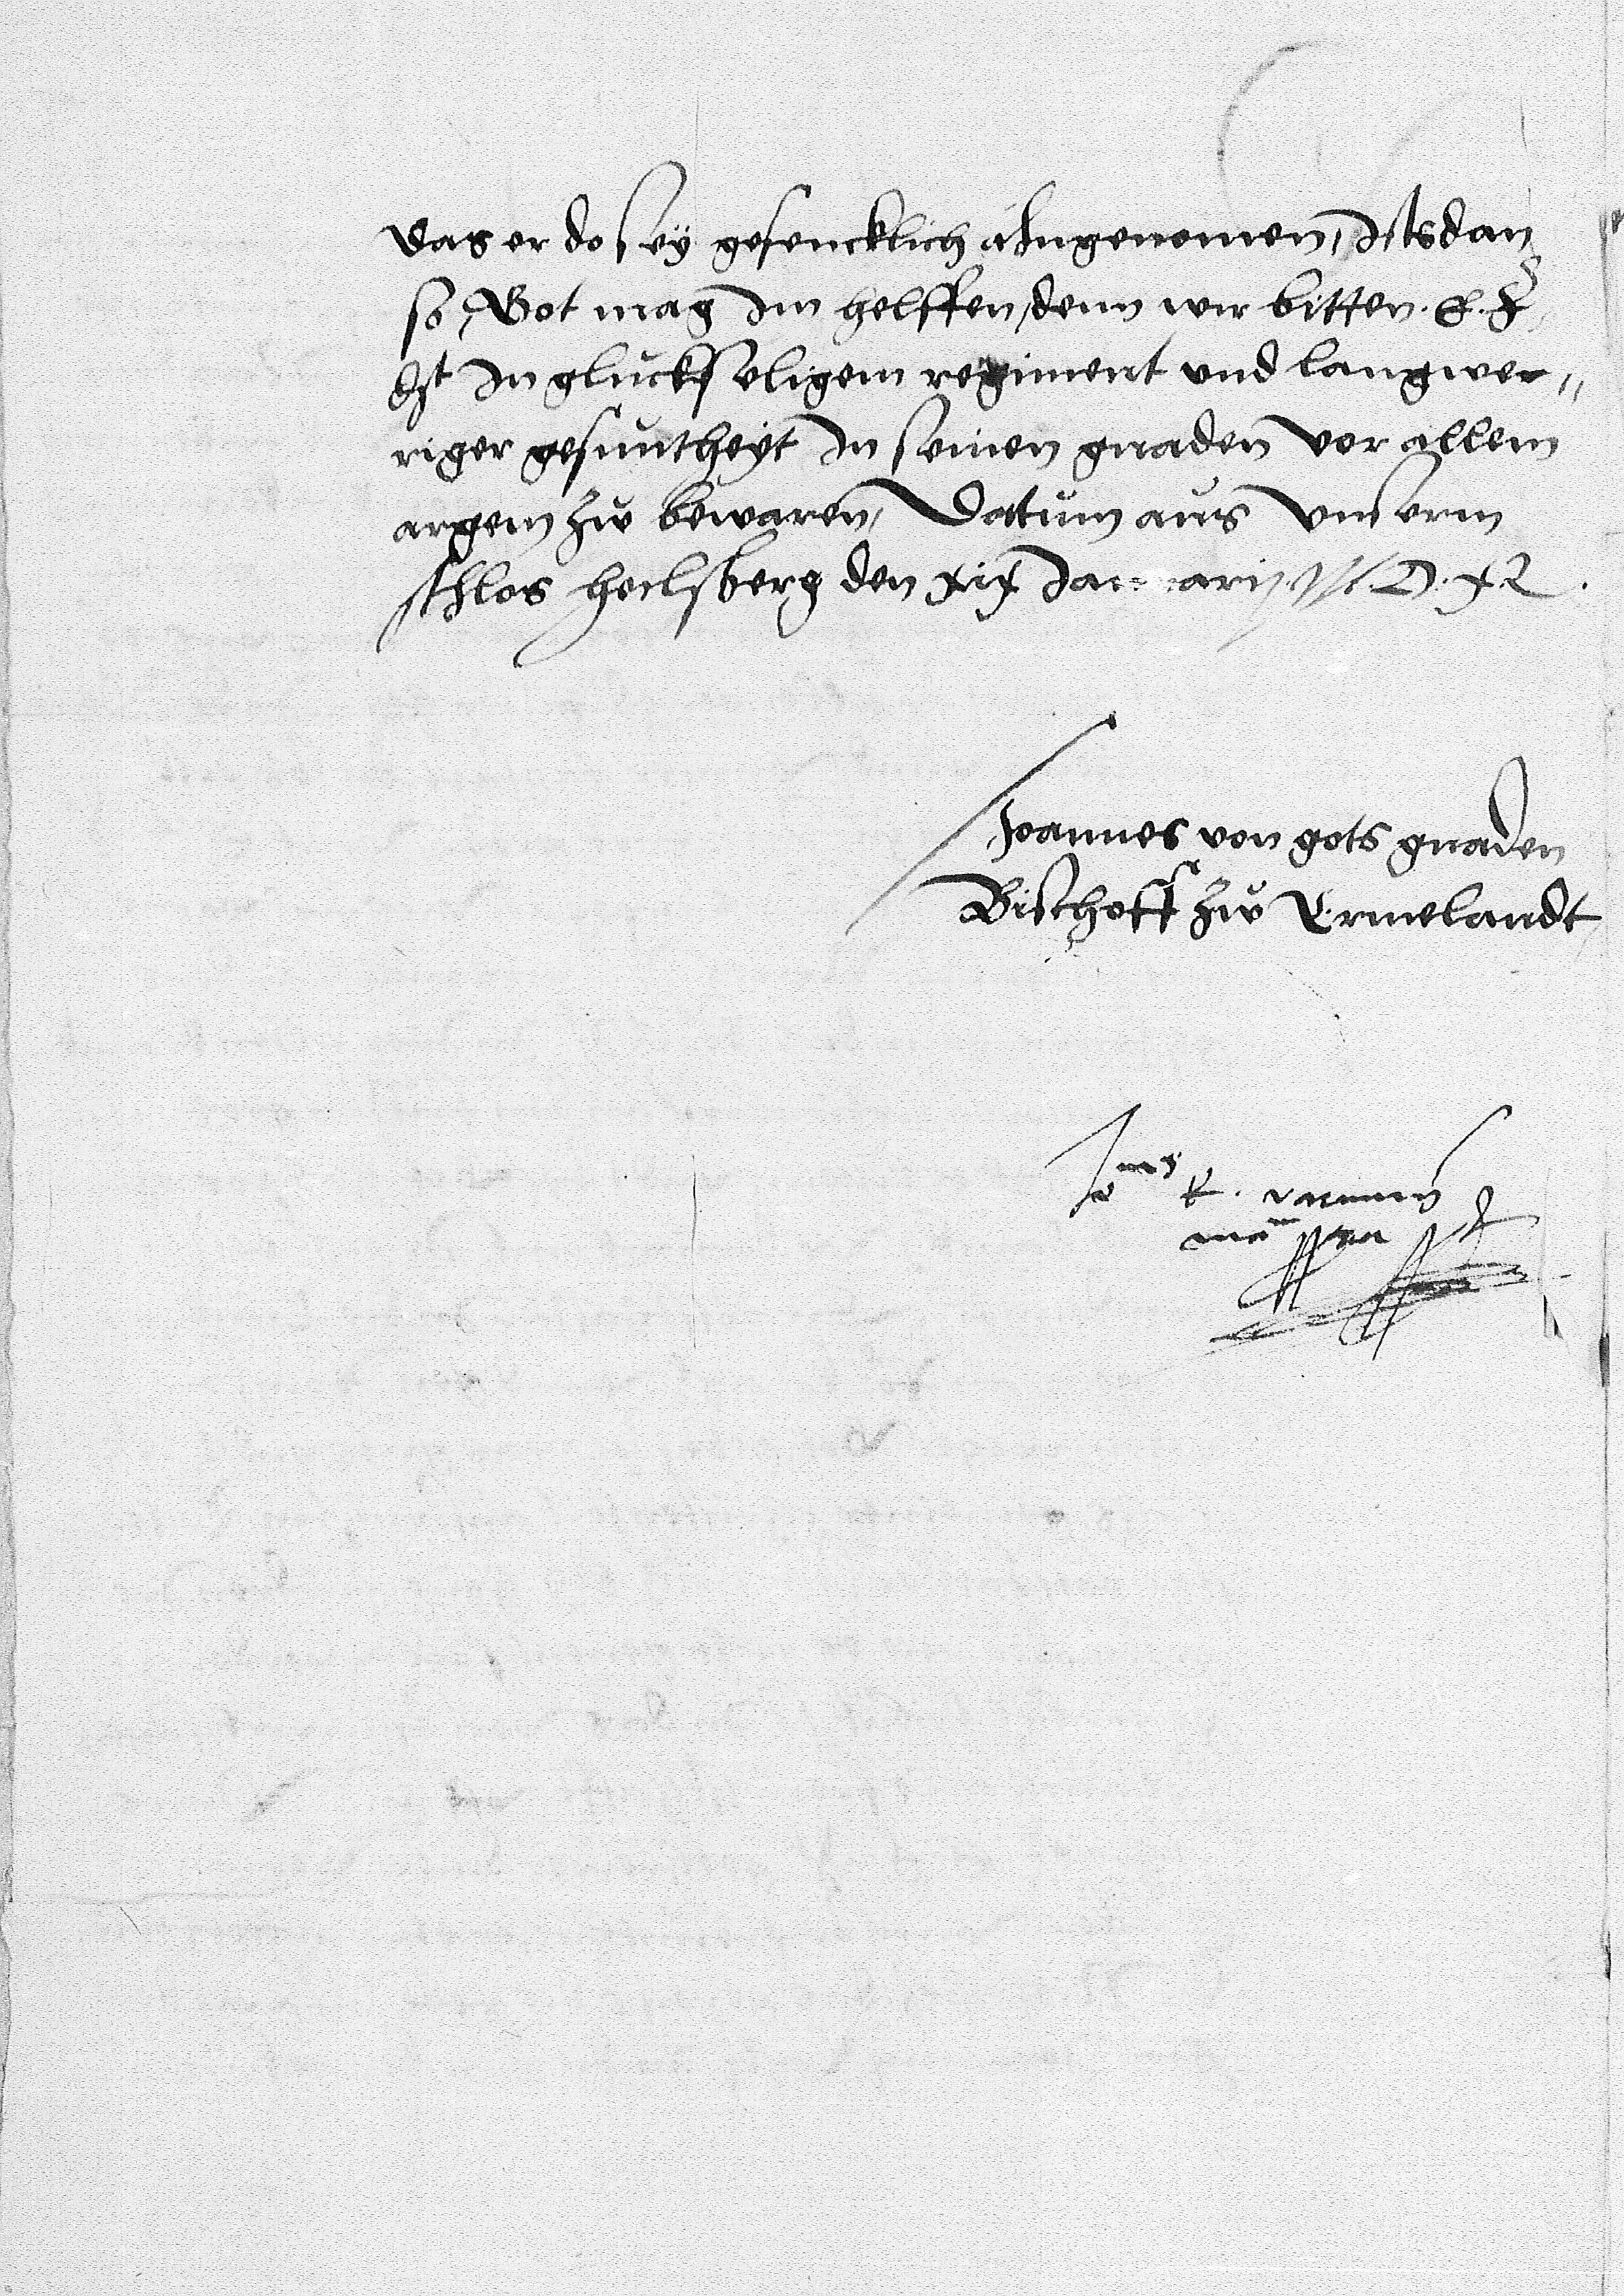 das er do sey gefencklich ahngenomen, Ists dan
so, Got mag Im helffen, denn wir bitten. E. F
Dt In gluckseligem regiment und langwe-
riger gesuntheyt In seinen gnaden vor allem
argem zw bewaren, Datum aus vnserm
schlos heilsberg den xix Januarij M.D.XL.
Joannes von gots gnaden
Bischoff zw Ermelandt